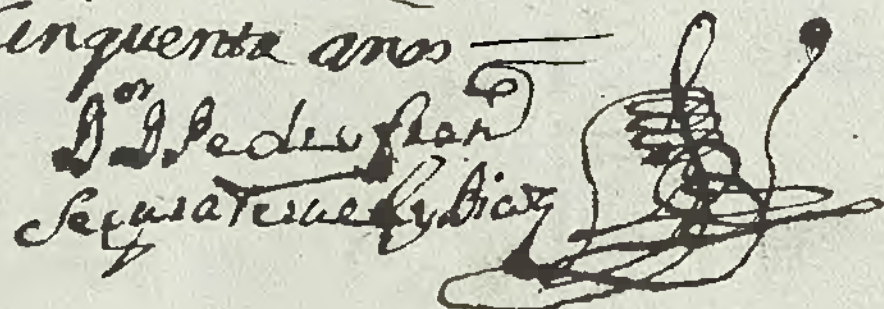 Cinquenta anos
Dor D Pedro Fran
Segura Teruel y Diaz